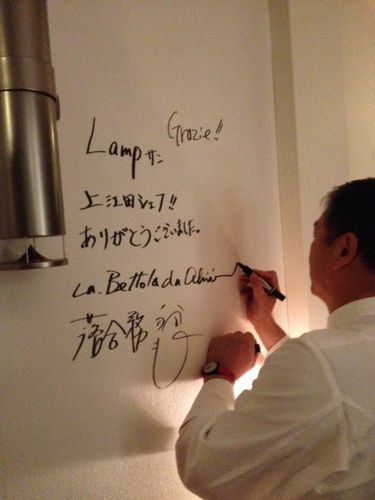 Lamp サン Grazie!!
上江田シェフ!!
ありがとうございました。
La. Bettola da Ochiai
落合務